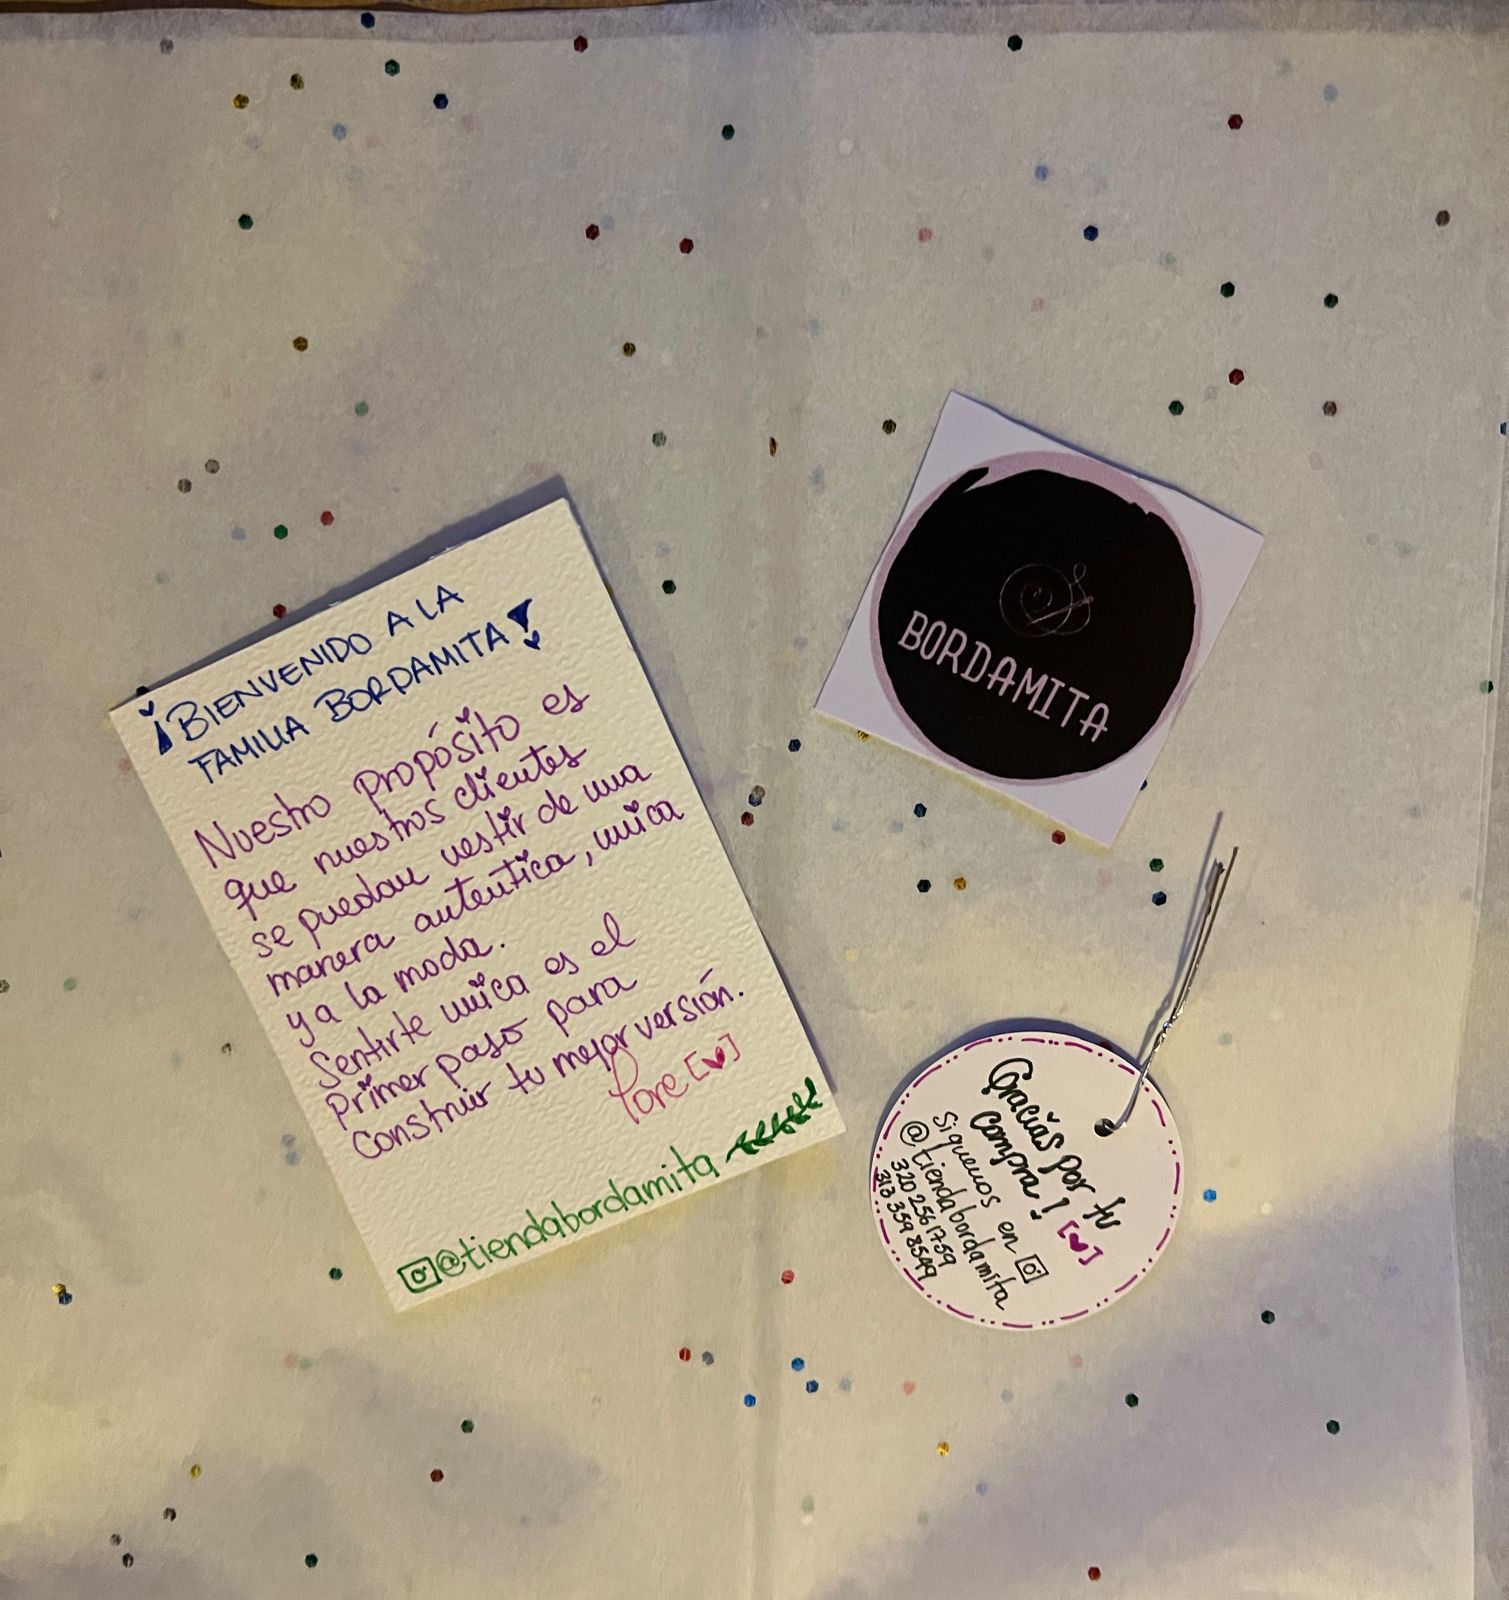 ¡BIENVENIDO A LA
FAMILIA BORDAMITA!
Nuestro propósito es
que nuestros clientes
se puedan vestir de una
manera autentica, unica
y a la moda.
Sentirte unica es el
Primer paso para
Construir tu mejor versión.
@tiendabordamita
BORDAMITA
Gracias por tu
compra!
Siguenos en
@tiendabordamita
320 256 1759
313 359 8549